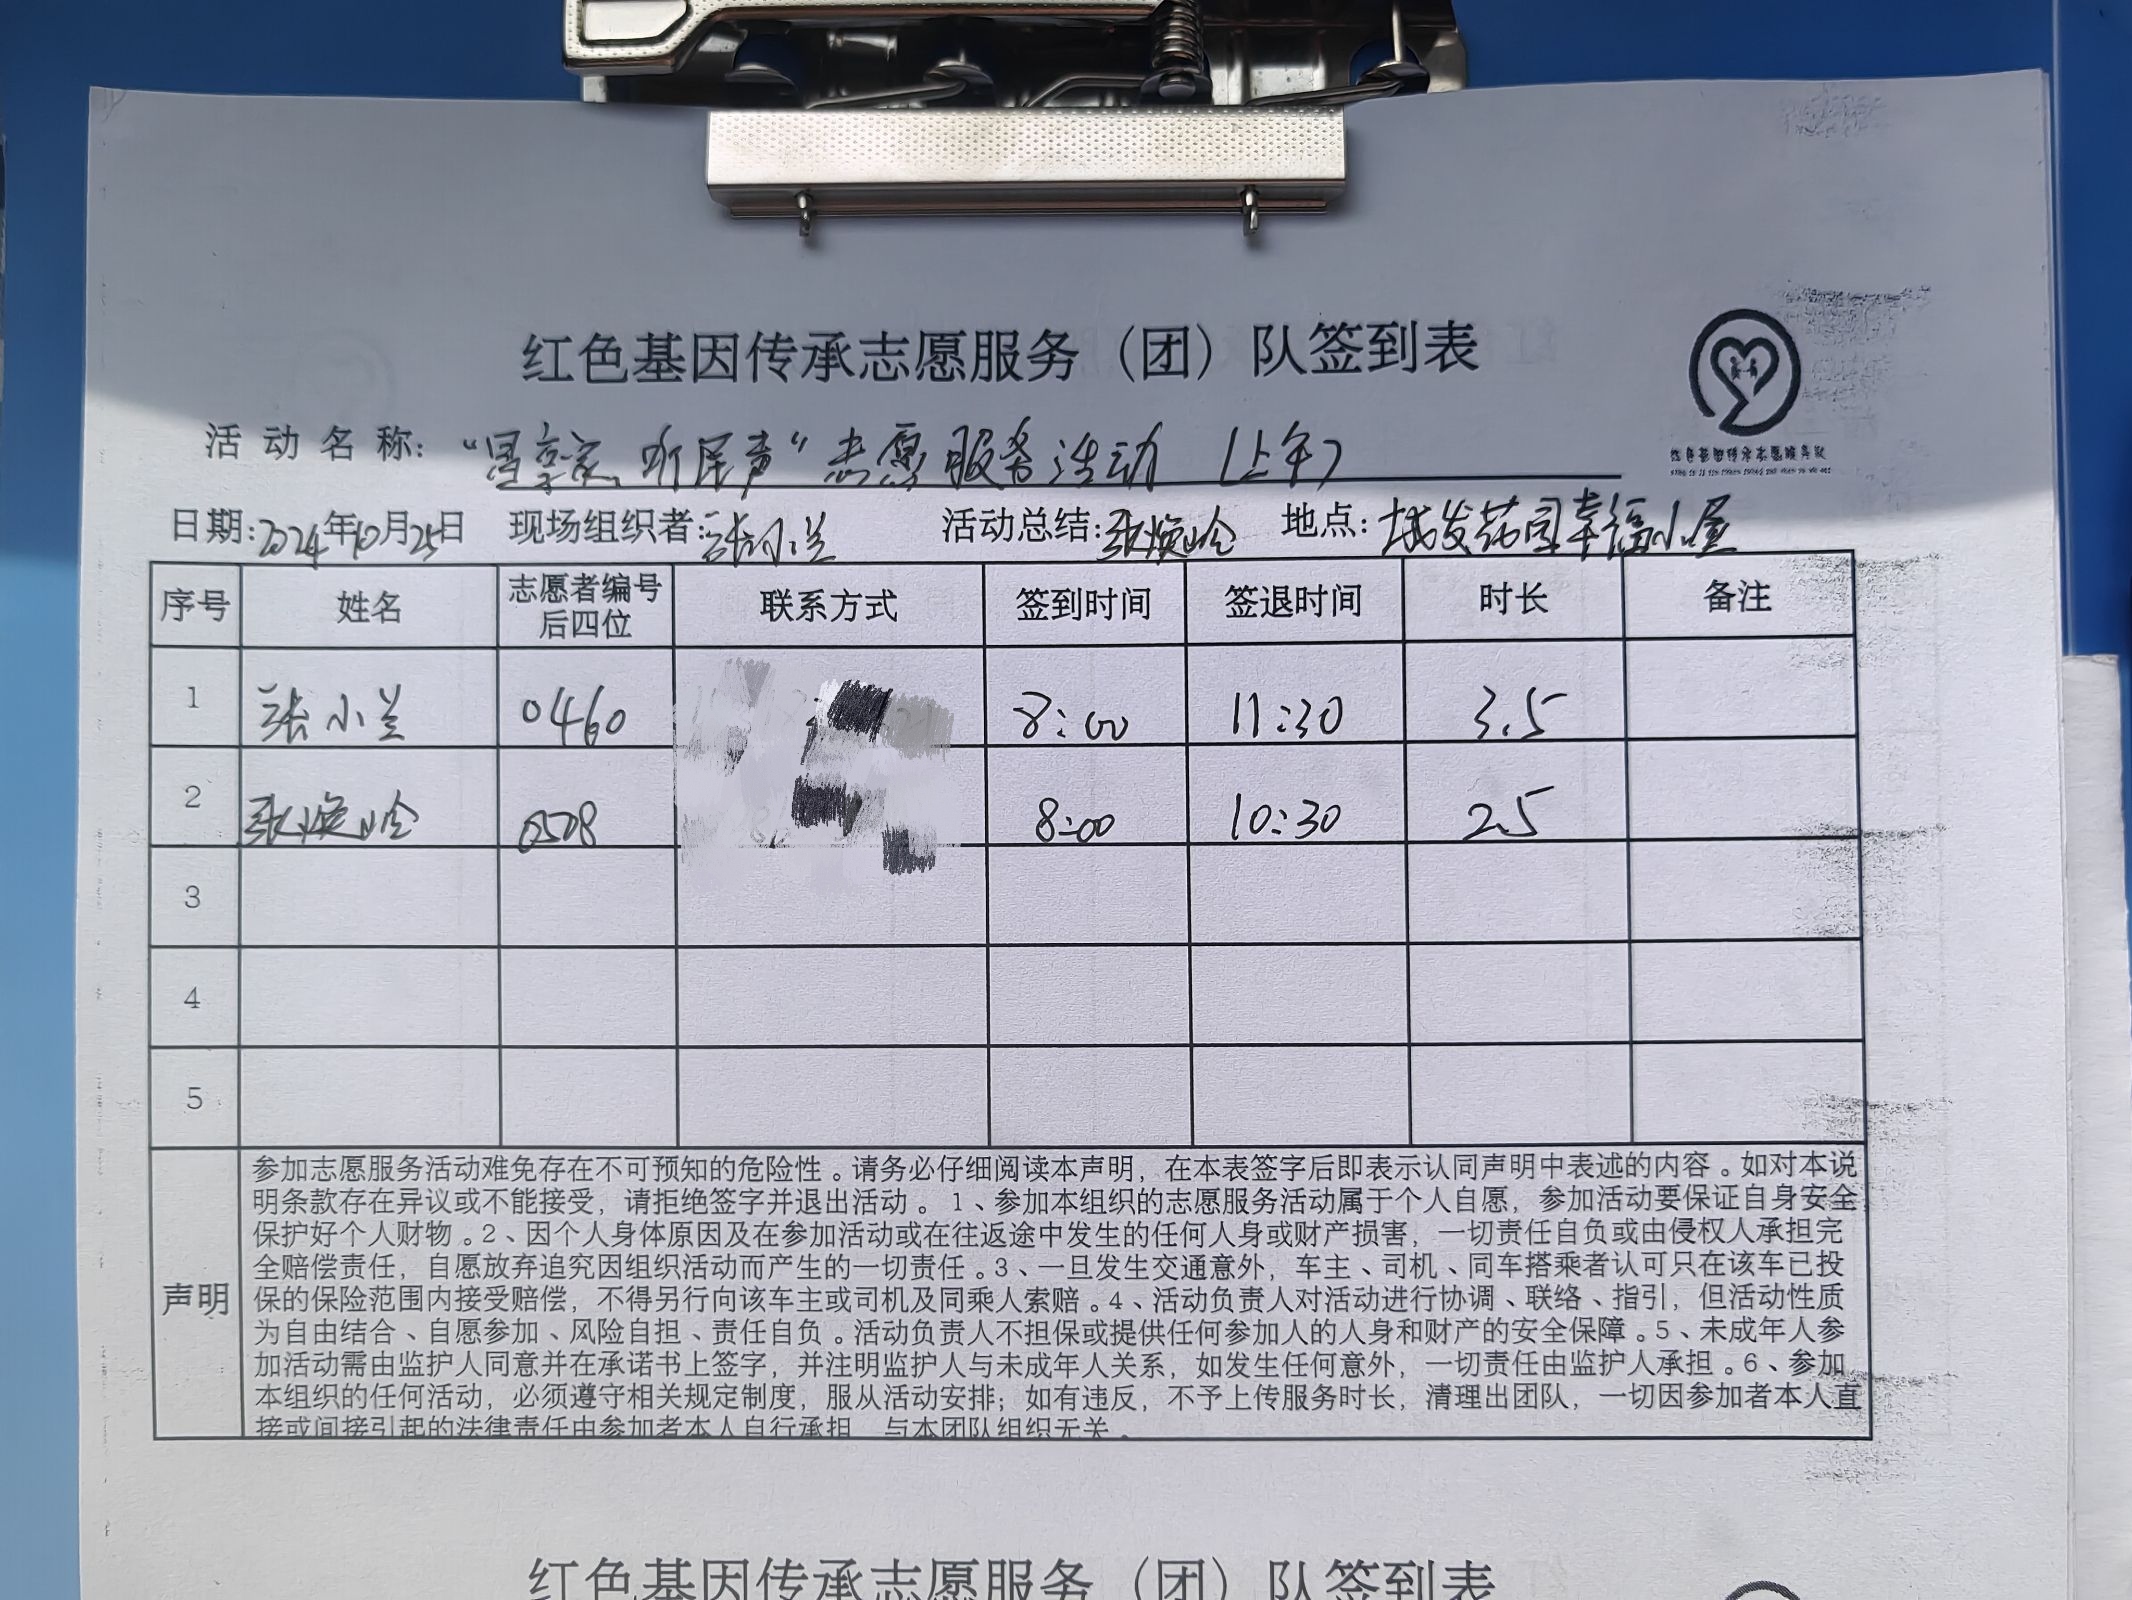 红色基因传承志愿服务（团）队签到表
活动名称：“ 享家 听 声”志愿服务活动（上午）
日期:2024年10月25日 现场组织者:张小兰 活动总结:张焕岭 地点:城发花园幸福小屋
序号 姓名 志愿者编号后四位 联系方式 签到时间 签退时间 时长 备注
1 张小兰 0460 8:00 11:30 3.5
2 张焕岭 0508 8:00 10:30 2.5
3
4
5
声明
参加志愿服务活动难免存在不可预知的危险性。请务必仔细阅读本声明，在本表签字后即表示认同声明中表述的内容。如对本说
明条款存在异议或不能接受，请拒绝签字并退出活动。1、参加本组织的志愿服务活动属于个人自愿，参加活动要保证自身安全
保护好个人财物。2、因个人身体原因及在参加活动或在往返途中发生的任何人身或财产损害，一切责任自负或由侵权人承担完
全赔偿责任，自愿放弃追究因组织活动而产生的一切责任。3、一旦发生交通意外，车主、司机、同车搭乘者认可只在该车已投
保的保险范围内接受赔偿，不得另行向该车主或司机及同乘人索赔。4、活动负责人对活动进行协调、联络、指引，但活动性质
为自由结合、自愿参加、风险自担、责任自负。活动负责人不担保或提供任何参加人的人身和财产的安全保障。5、未成年人参
加活动需由监护人同意并在承诺书上签字，并注明监护人与未成年人关系，如发生任何意外，一切责任由监护人承担。6、参加
本组织的任何活动，必须遵守相关规定制度，服从活动安排；如有违反，不予上传服务时长，清理出团队，一切因参加者本人直
接或间接引起的法律责任由参加者本人自行承担，与本团队组织无关。
红色基因传承志愿服务（团）队签到表